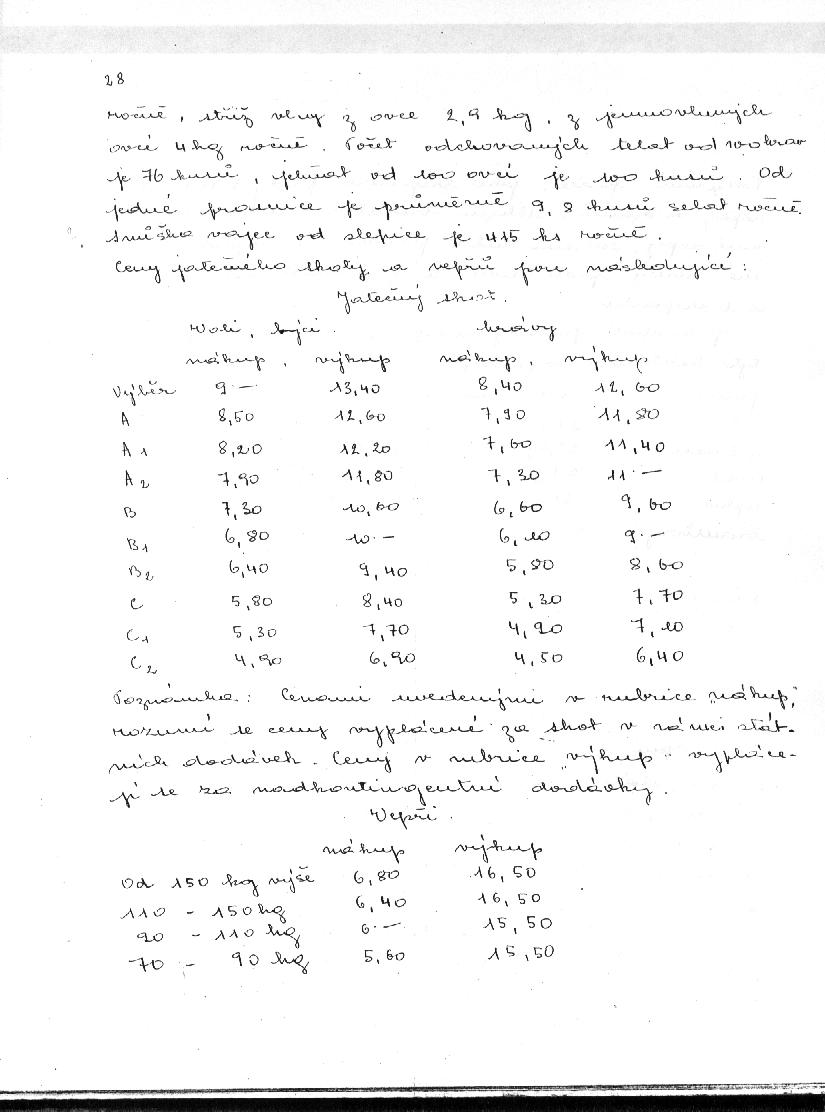 28
ročně, stříž vlny z ovce 2,9 kg, z jemnovlnných
ovcí 4 kg ročně. Počet odchovaných telat od 100 krav
je 76 kusů, jehňat od 100 ovcí je 100 kusů. Od
jedné prasnice je průměrně 9,8 kusů selat ročně.
Snůška vajec od slepice je 115 ks ročně.
Ceny jatečného skotu a vepřů jsou následující:
Jatečný skot.
Voli, býci. krávy
nákup, výkup nákup, výkup
Výběr 9.— 13,40 8,40 12,60
A 8,50 12,60 7,90 11,80
A1 8,20 12,20 7,60 11,40
A2 7,90 11,80 7,30 11.—
B 7,30 10,60 6,60 9,60
B1 6,80 10.— 6,10 9.—
B2 6,40 9,40 5,80 8,60
C 5,80 8,40 5,30 7,70
C1 5,30 7,70 4,90 7,10
C2 4,90 6,90 4,50 6,40
Poznámka: Cenami uvedenými v rubrice „nákup"
rozumí se ceny vyplácené za skot v rámci stát-
ních dodávek. Ceny v rubrice „výkup" vypláce-
jí se za nadkontingentní dodávky.
Vepři.
nákup výkup
Od 150 kg výše 6,80 16,50
110 - 150 kg 6,40 16,50
90 - 110 kg 6.— 15,50
70 - 90 kg 5,60 15,50